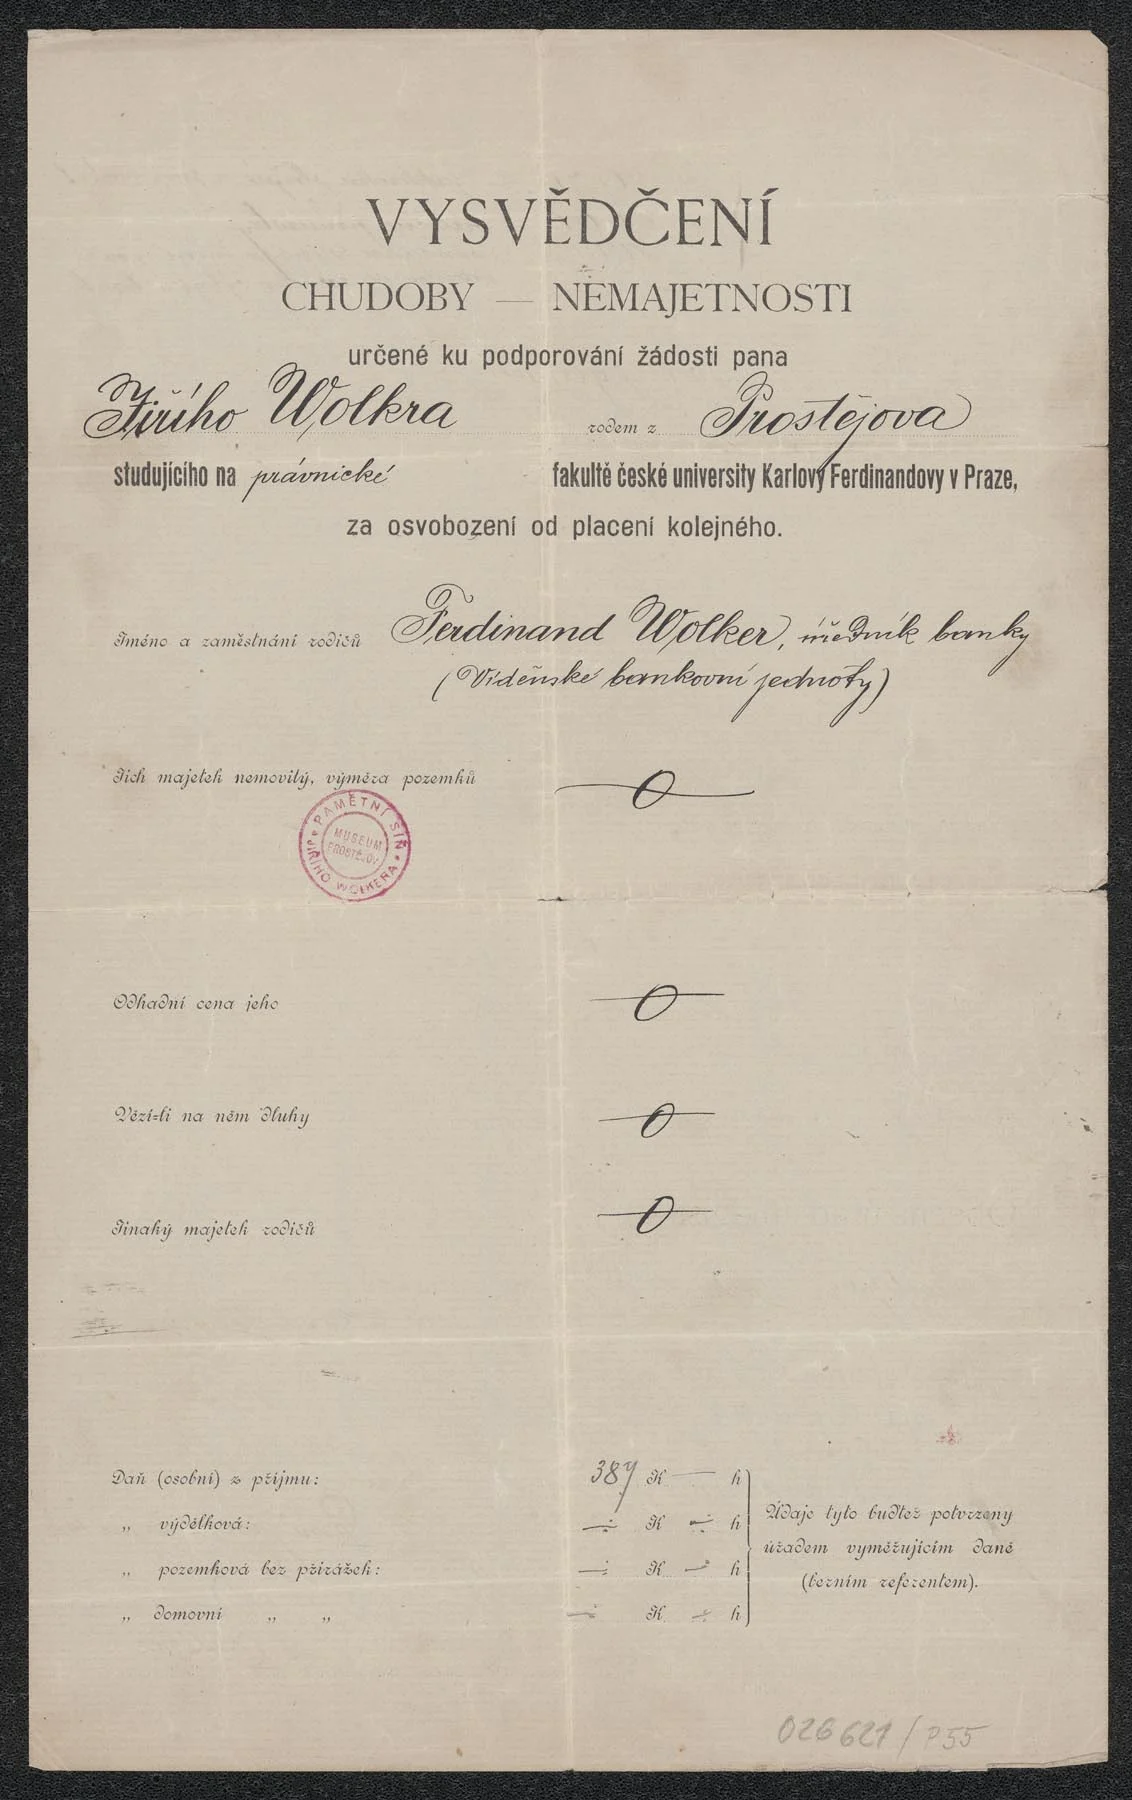 VYSVĚDČENÍ
CHUDOBY — NEMAJETNOSTI
určené ku podporování žádosti pana
Jiřího Wolkra rodem z Prostějova
studujícího na právnické fakultě české university Karlovy Ferdinandovy v Praze,
za osvobození od placení kolejného.
Jméno a zaměstnání rodičů Ferdinand Wolker, úředník banky
(Vídeňské bankovní jednoty)
Jich majetek nemovitý, výměra pozemků O
PAMĚTNÍ SÍŇ
JIŘÍHO WOLKERA
MUSEUM
PROSTĚJOV
Odhadní cena jeho O
Vězí-li na něm dluhy O
Jinaký majetek rodičů O
Daň (osobní) z příjmu: 387 K — h
„ výdělková: — K — h
„ pozemková bez přirážek: — K — h
„ domovní „ „ — K — h
Údaje tyto buďtež potvrzeny
úřadem vyměřujícím daně
(berním referentem).
026621/P55